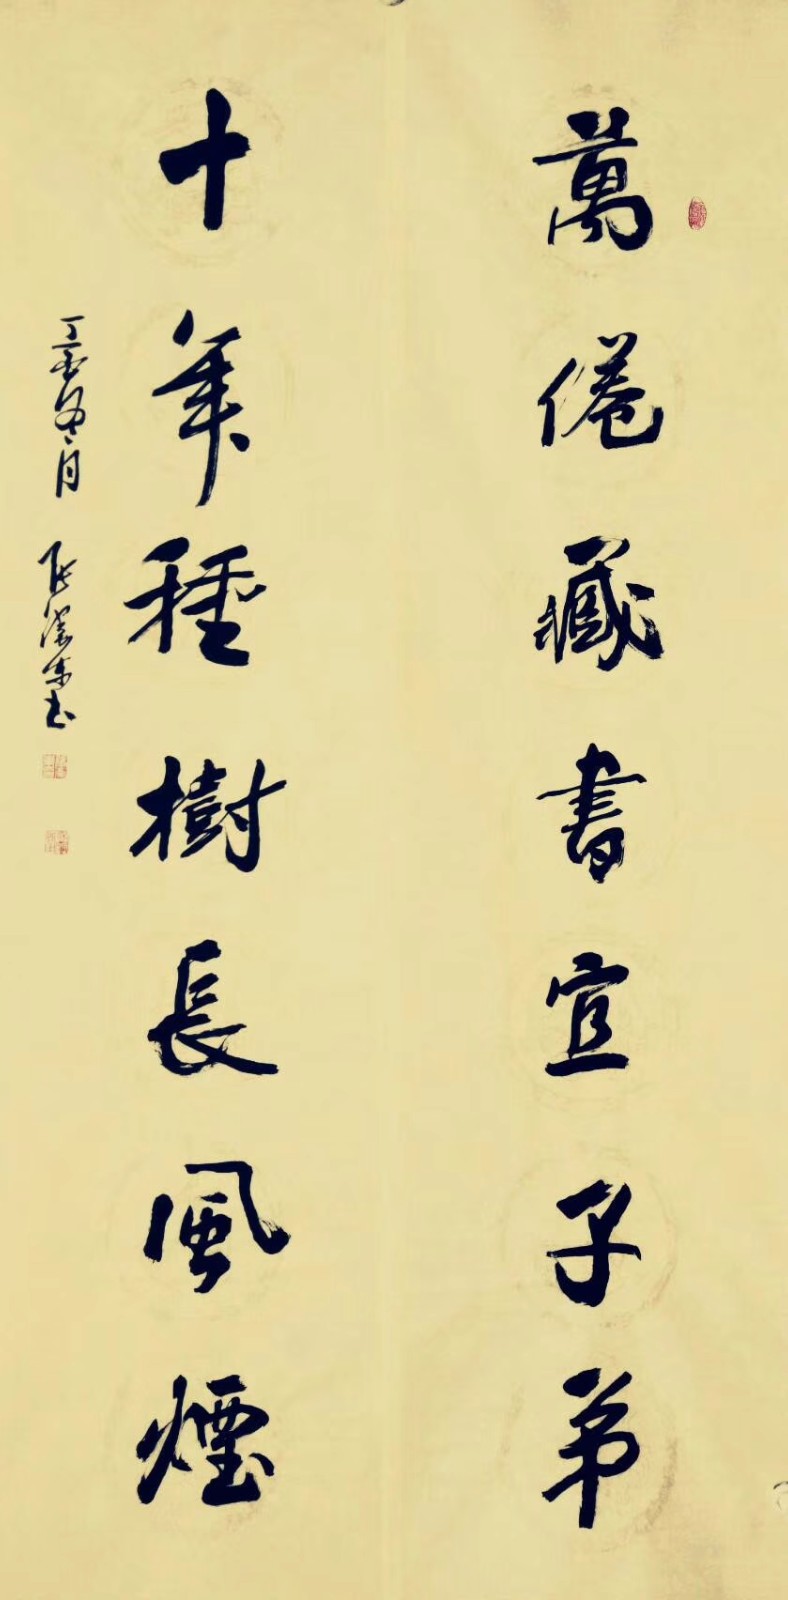 萬倦藏書宜子弟
十年種樹長風煙
丁酉冬月